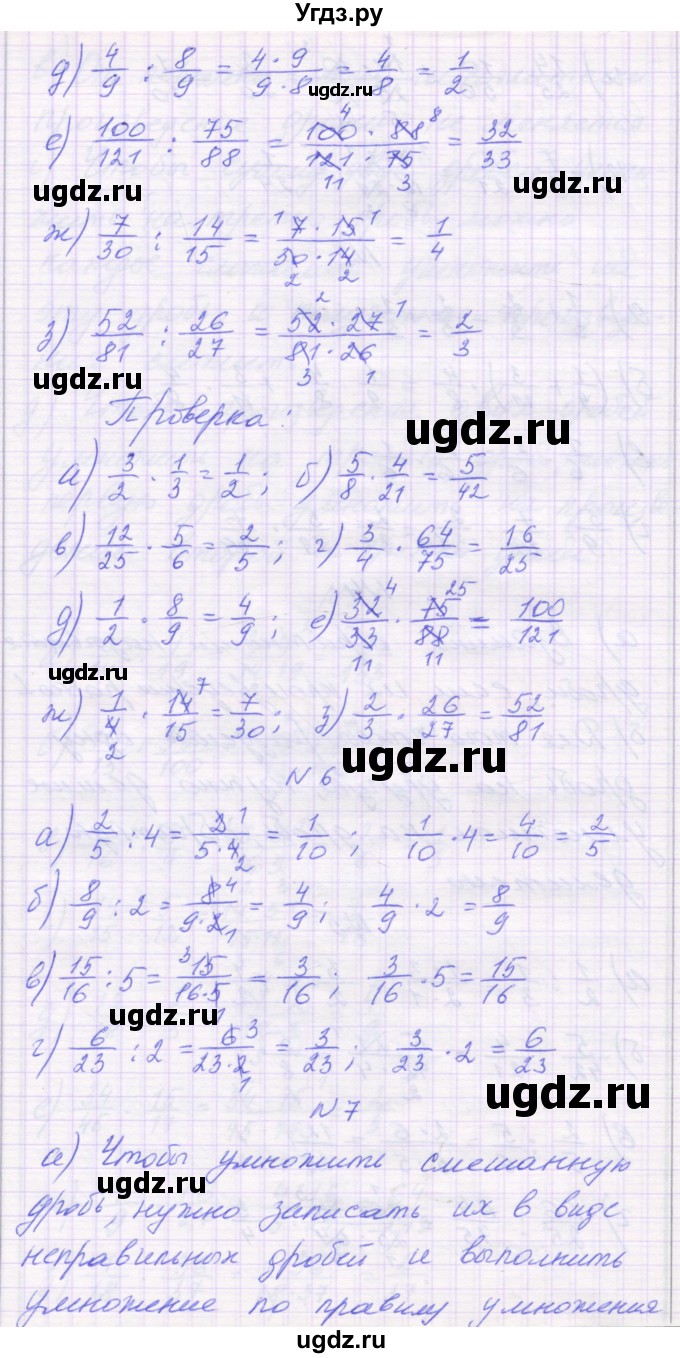 Угдз.ру
д) 4/9 : 8/9 = 4·9/9·8 = 4/8 = 1/2
ugdz.ru
е) 100/121 : 75/88 = 100·88/121·75 = 32/33
4 8 11 3
ugdz.ru ugdz.ru
ж) 7/30 : 14/15 = 7·15/30·14 = 1/4
1 1 2 2
з) 52/81 : 26/27 = 52·27/81·26 = 2/3
2 1 3 1
ugdz.ru
Проверка:
ugdz.ru
а) 3/2 · 1/3 = 1/2; б) 5/8 · 4/21 = 5/42
в) 12/25 · 5/6 = 2/5; г) 3/4 · 64/75 = 16/25
ugdz.ru ugdz.ru
д) 1/2 · 8/9 = 4/9; е) 32/33 · 75/88 = 100/121
4 25 11 11
ugdz.ru
ж) 1/4 · 14/15 = 7/30; з) 2/3 · 26/27 = 52/81
7 2
ugdz.ru
N 6
а) 2/5 : 4 = 2/5·4 = 1/10; 1/10 · 4 = 4/10 = 2/5
1 2
б) 8/9 : 2 = 8/9·2 = 4/9; 4/9 · 2 = 8/9
4 1
ugdz.ru
в) 15/16 : 5 = 15/16·5 = 3/16; 3/16 · 5 = 15/16
3 1
ugdz.ru
г) 6/23 : 2 = 6/23·2 = 3/23; 3/23 · 2 = 6/23
3 1
ugdz.ru
N 7
а) Чтобы умножить смешанную
ugdz.ru
дробь, нужно записать их в виде
ugdz.ru
неправильных дробей и выполнить
умножение по правилу умножения
ugdz.ru